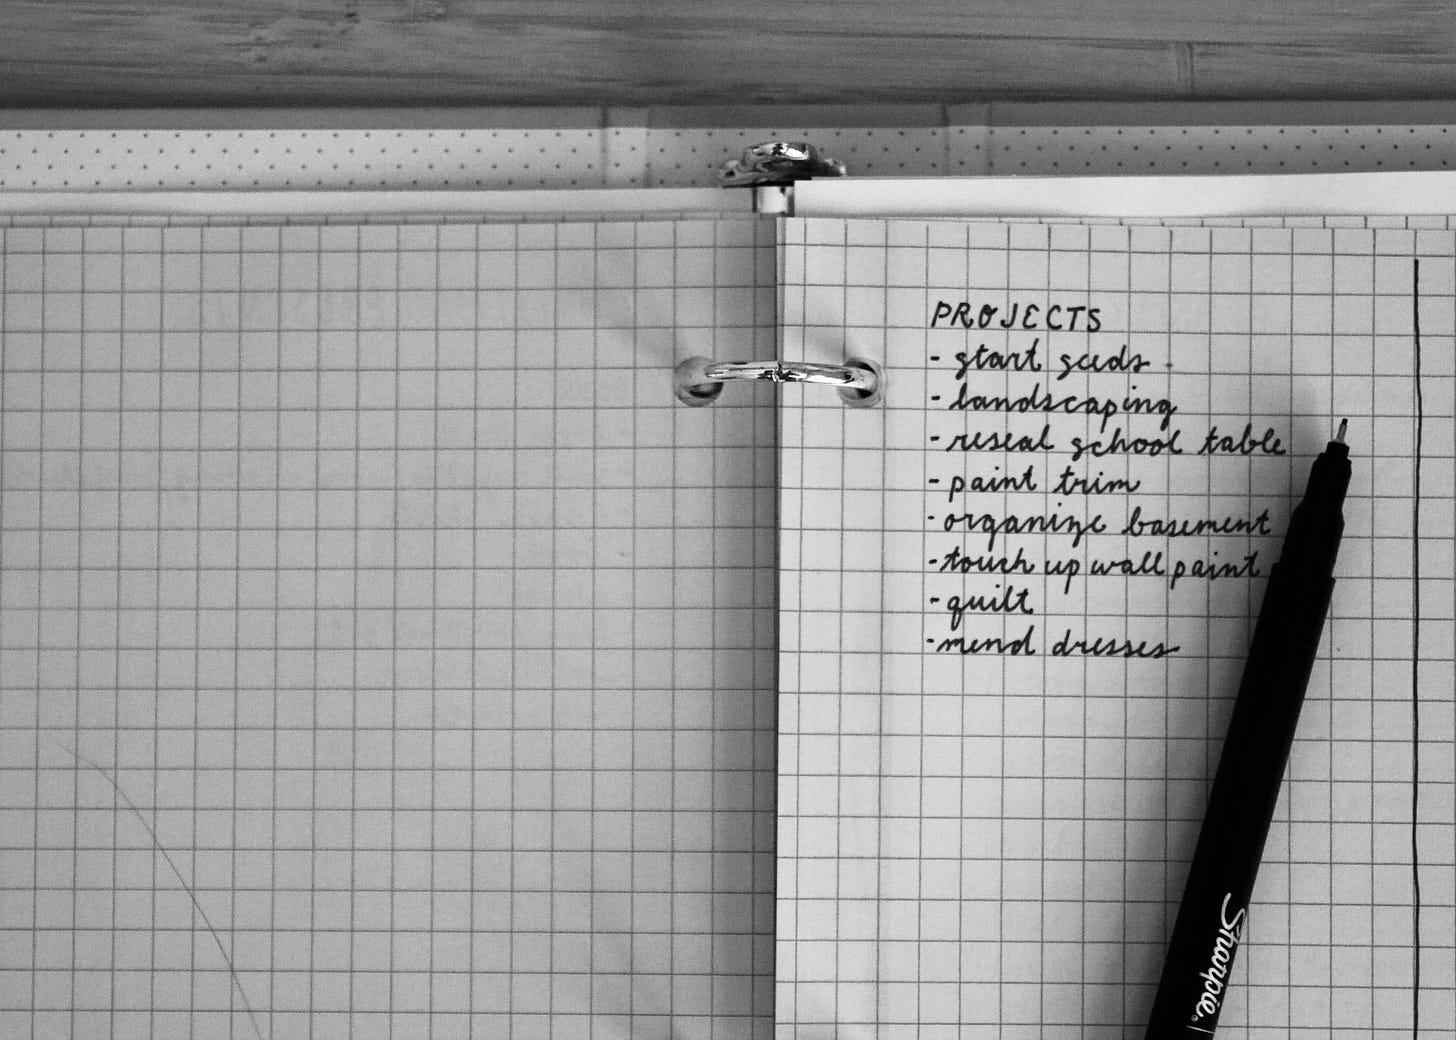 PROJECTS
- start seeds -
- landscaping
- reseal school table
- paint trim
- organize basement
- touch up wall paint
- quilt
- mend dresses
Sharpie®